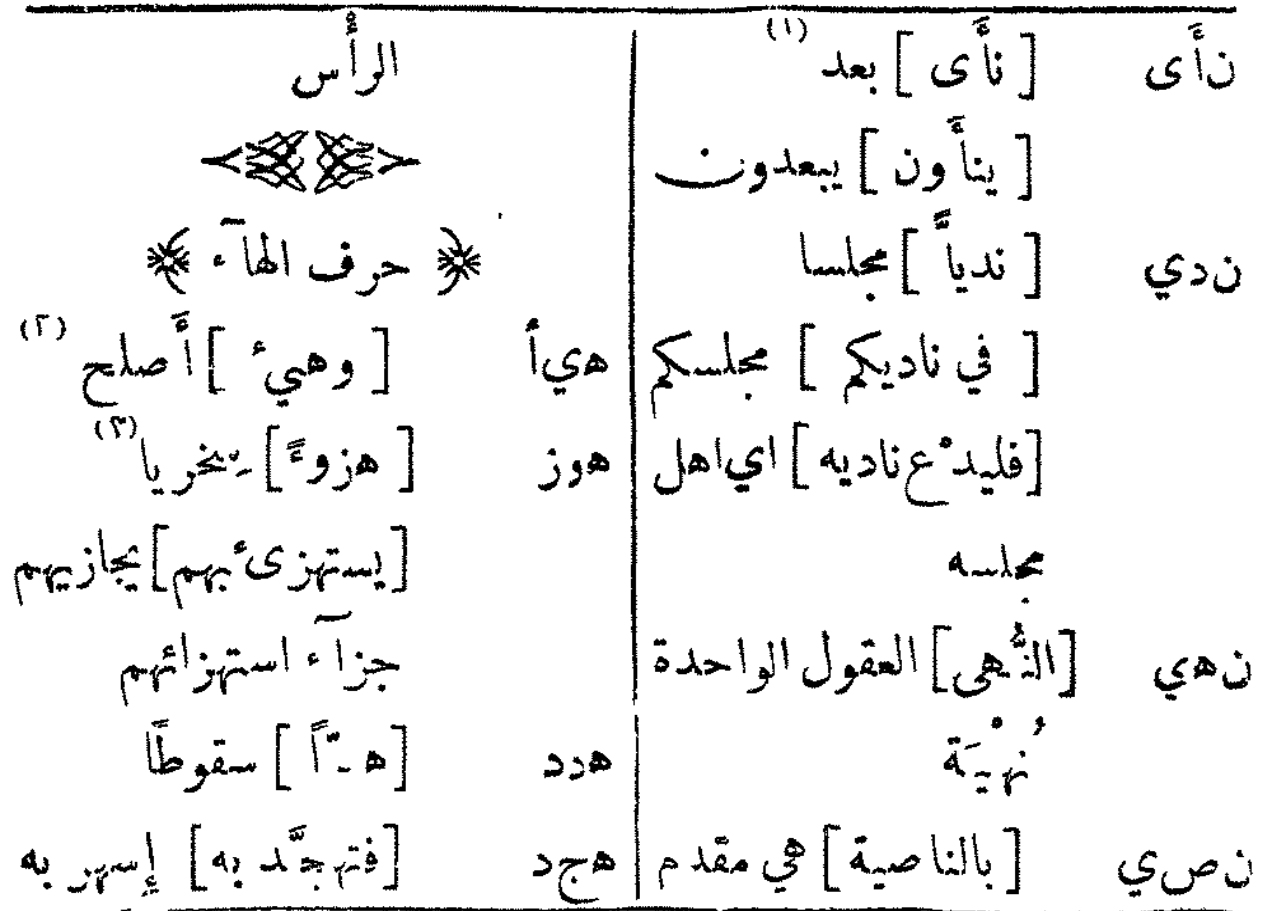 ن أ ى [ نأى ] بعد (١)
[ ينأون ] يبعدون
ن د ي [ ندياً ] مجلسا
[ في ناديكم ] مجلسكم
[ فليدْع ناديه ] اي اهل
مجلسه
ن ه ي [ النُّهى ] العقول الواحدة
نُهْيَة
ن ص ي [ بالناصية ] هي مقدم
الرأس
﴿ حرف الهآء ﴾
ه ي أ [ وهيء ] أصلح (٢)
ه و ز [ هزوءً ] سخريا (٣)
[ يستهزىء بهم ] يجازيهم
جزآء استهزائهم
ه د د [ هدّاً ] سقوطًا
ه ج د [ فتهجَّد به ] إسهر به